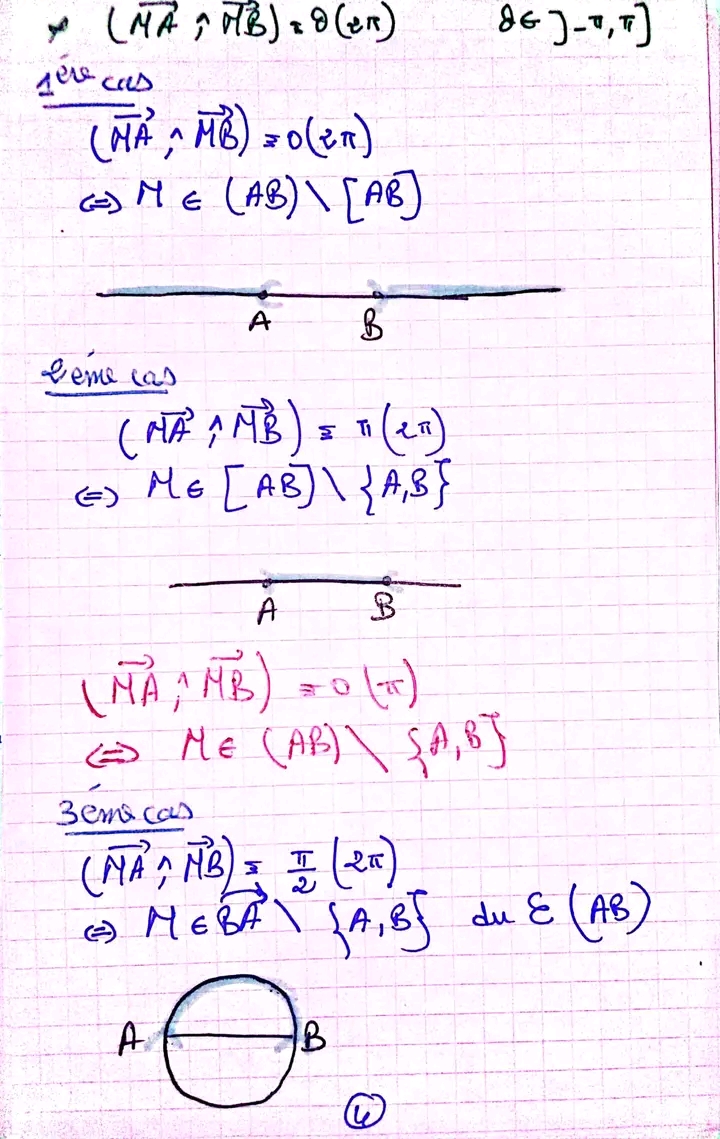 * (MA ^ MB) ≡ θ(2π) θ ∈ ]-π,π]
1ère cas
(MA ^ MB) ≡ 0(2π)
⇔ M ∈ (AB) \ [AB]
A B
2ème cas
(MA ^ MB) ≡ π(2π)
⇔ M ∈ [AB] \ {A,B}
A B
(MA ^ MB) ≡ 0(π)
⇔ M ∈ (AB) \ {A,B}
3ème cas
(MA ^ MB) ≡ π/2 (2π)
⇔ M ∈ BA \ {A,B} du ℰ(AB)
A B
4